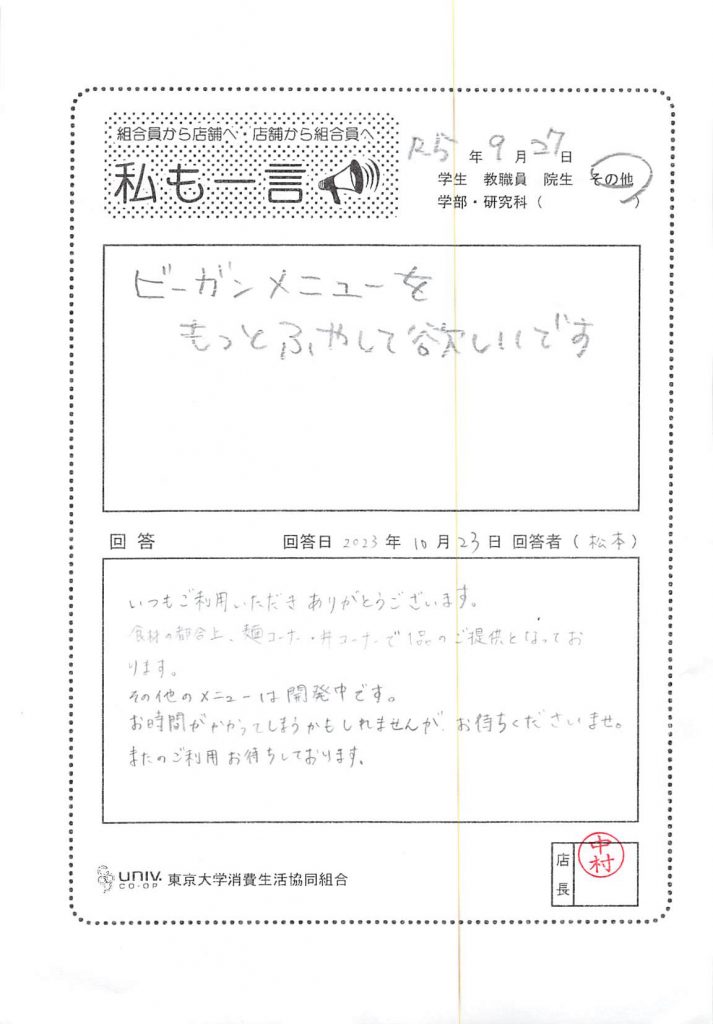 組合員から店舗へ・店舗から組合員へ
私も一言
R5年9月27日
学生 教職員 院生 その他
学部・研究科（ ）
ビーガンメニューを
もっとふやして欲しいです
回答 回答日 2023年10月23日 回答者（松本）
いつもご利用いただきありがとうございます。
食材の都合上、麺コーナー・丼コーナーで1品のご提供となってお
ります。
その他のメニューは開発中です。
お時間がかかってしまうかもしれませんが、お待ちくださいませ。
またのご利用お待ちしております。
UNIV. CO-OP 東京大学消費生活協同組合
店長
中村